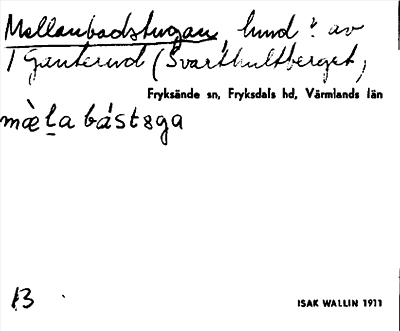 Mellanbadstugan, lund ? av
1 Ganterud (Svarthultberget,
Fryksände sn, Fryksdals hd, Värmlands län
mæ̀l̠a bástsga
13
ISAK WALLIN 1911